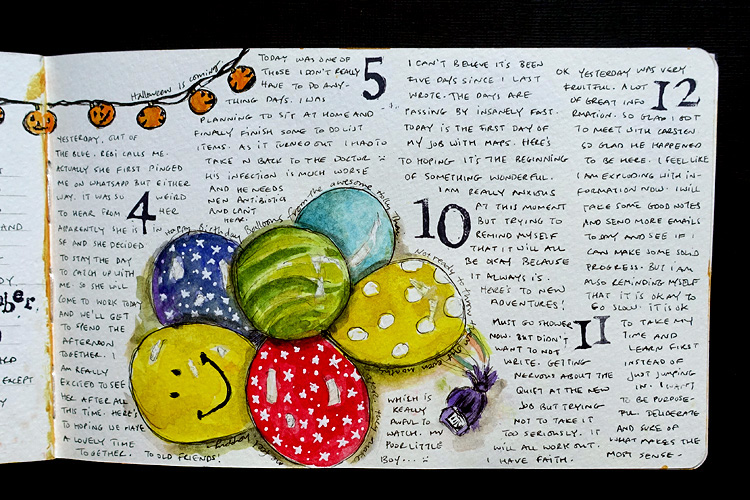 Halloween is coming
YESTERDAY, OUT OF
THE BLUE, REBI CALLS ME.
ACTUALLY SHE FIRST PINGED
ME ON WHATSAPP BUT EITHER
WAY. IT WAS SO WEIRD
TO HEAR FROM HER
4
APARENTLY SHE IS IN
SF AND SHE DECIDED
TO STAY THE DAY
TO CATCH UP WITH
ME. SO SHE WILL
COME TO WORK TODAY
AND WE'LL GET
TO SPEND THE
AFTERNOON
TOGETHER. I
AM REALLY
EXCITED TO SEE
HER AFTER ALL
THIS TIME. HERE'S
TO HOPING WE HAVE
A LOVELY TIME
TOGETHER. TO OLD FRIENDS!
TODAY WAS ONE OF
THOSE I DON'T REALLY
HAVE TO DO ANY-
THING DAYS. I WAS
5
PLANNING TO SIT AT HOME AND
FINALLY FINISH SOME TO DO LIST
ITEMS. AS IT TURNED OUT I HAD TO
TAKE N BACK TO THE DOCTOR
HIS INFECTION IS MUCH WORSE
AND HE NEEDS
NEW ANTIBIOTICS
AND CAN'T
HEAR.
Happy Birthday Balloons from the awesome
WHICH IS
REALLY
AWFUL TO
WATCH. MY
POOR LITTLE
BOY...
I CAN'T BELIEVE IT'S BEEN
FIVE DAYS SINCE I LAST
WROTE. THE DAYS ARE
PASSING BY INSANELY FAST.
TODAY IS THE FIRST DAY OF
MY JOB WITH MAPS. HERE'S
TO HOPING IT'S THE BEGINNING
OF SOMETHING WONDERFUL.
I AM REALLY ANXIOUS
10
AT THIS MOMENT
BUT TRYING TO
REMIND MYSELF
THAT IT WILL ALL
BE OKAY BECAUSE
IT ALWAYS IS.
HERE'S TO NEW
ADVENTURES!
MUST GO SHOWER
11
NOW. BUT DIDN'T
WANT TO NOT
WRITE. GETTING
NERVOUS ABOUT THE
QUIET AT THE NEW
JOB BUT TRYING
NOT TO TAKE IT
TOO SERIOUSLY. IT
WILL ALL WORK OUT.
I HAVE FAITH.
OK YESTERDAY WAS VERY
12
FRUITFUL. A LOT
OF GREAT INFO
RMATION. SO GLAD I GOT
TO MEET WITH CARSTEN
SO GLAD HE HAPPENED
TO BE HERE. I FEEL LIKE
I AM EXPLODING WITH IN-
FORMATION NOW. I WILL
TAKE SOME GOOD NOTES
AND SEND MORE EMAILS
TODAY AND SEE IF I
CAN MAKE SOME SOLID
PROGRESS. BUT I AM
ALSO REMINDING MYSELF
THAT IT IS OKAY TO
GO SLOW. IT IS OK
TO TAKE MY
TIME AND
LEARN FIRST
INSTEAD OF
JUST JUMPING
IN. I WANT
TO BE PURPOSE-
FUL. DELIBERATE
AND SURE OF
WHAT MAKES THE
MOST SENSE.
AND
ber.
EXCEPT